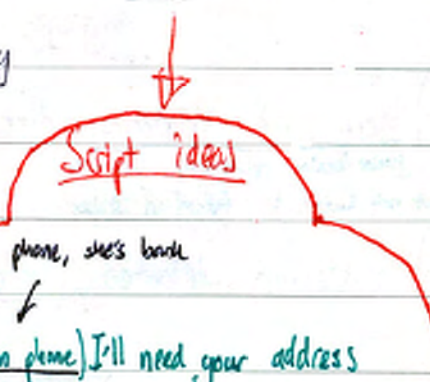 Script ideas
phone, she's back
phone) I'll need your address